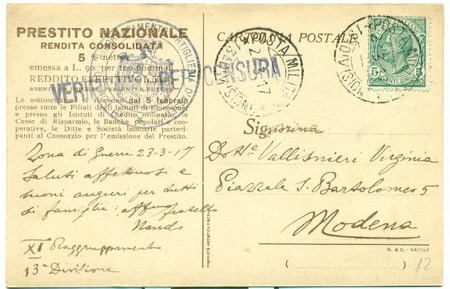 PRESTITO NAZIONALE
RENDITA CONSOLIDATA
5 % netto
emessa a L. 90 per 100 nominali
REDDITO EFFETTIVO
Le sottoscrizioni si ricevono dal 5 febbraio
presso tutte le Filiali degli Istituti di Emissione
e presso gli Istituti di Credito ordinario, le
Casse di Risparmio, le Banche popolari e coo-
perative, le Ditte e Società bancarie parteci-
panti al Consorzio per l'emissione del Prestito.
VERIFICATO PER CENSURA
CARTOLINA POSTALE
POSTA MILITARE
Zona di Guerra 23-3-17
Saluti affettuosi e
buoni auguri per tutti
di famiglia: affmo fratello
Nando
XI Raggruppamento
13ª Divisione
Signorina
Vallisnieri Virginia
Piazzale S. Bartolomeo 5
Modena
R. & C. - NAPOLI
12